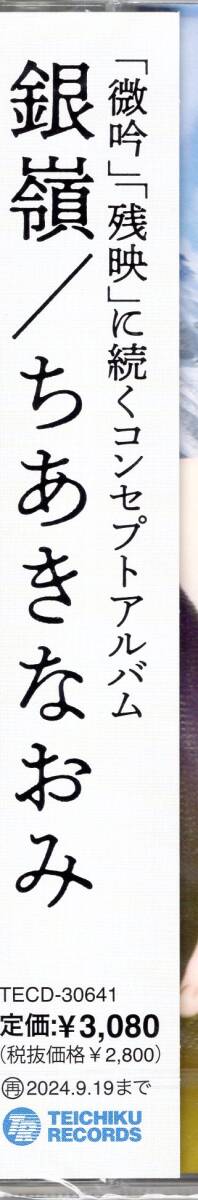 「微吟」「残映」に続くコンセプトアルバム
銀嶺/ちあきなおみ
TECD-30641
定価:¥3,080
(税抜価格¥2,800)
再2024.9.19まで
TEICHIKU
RECORDS